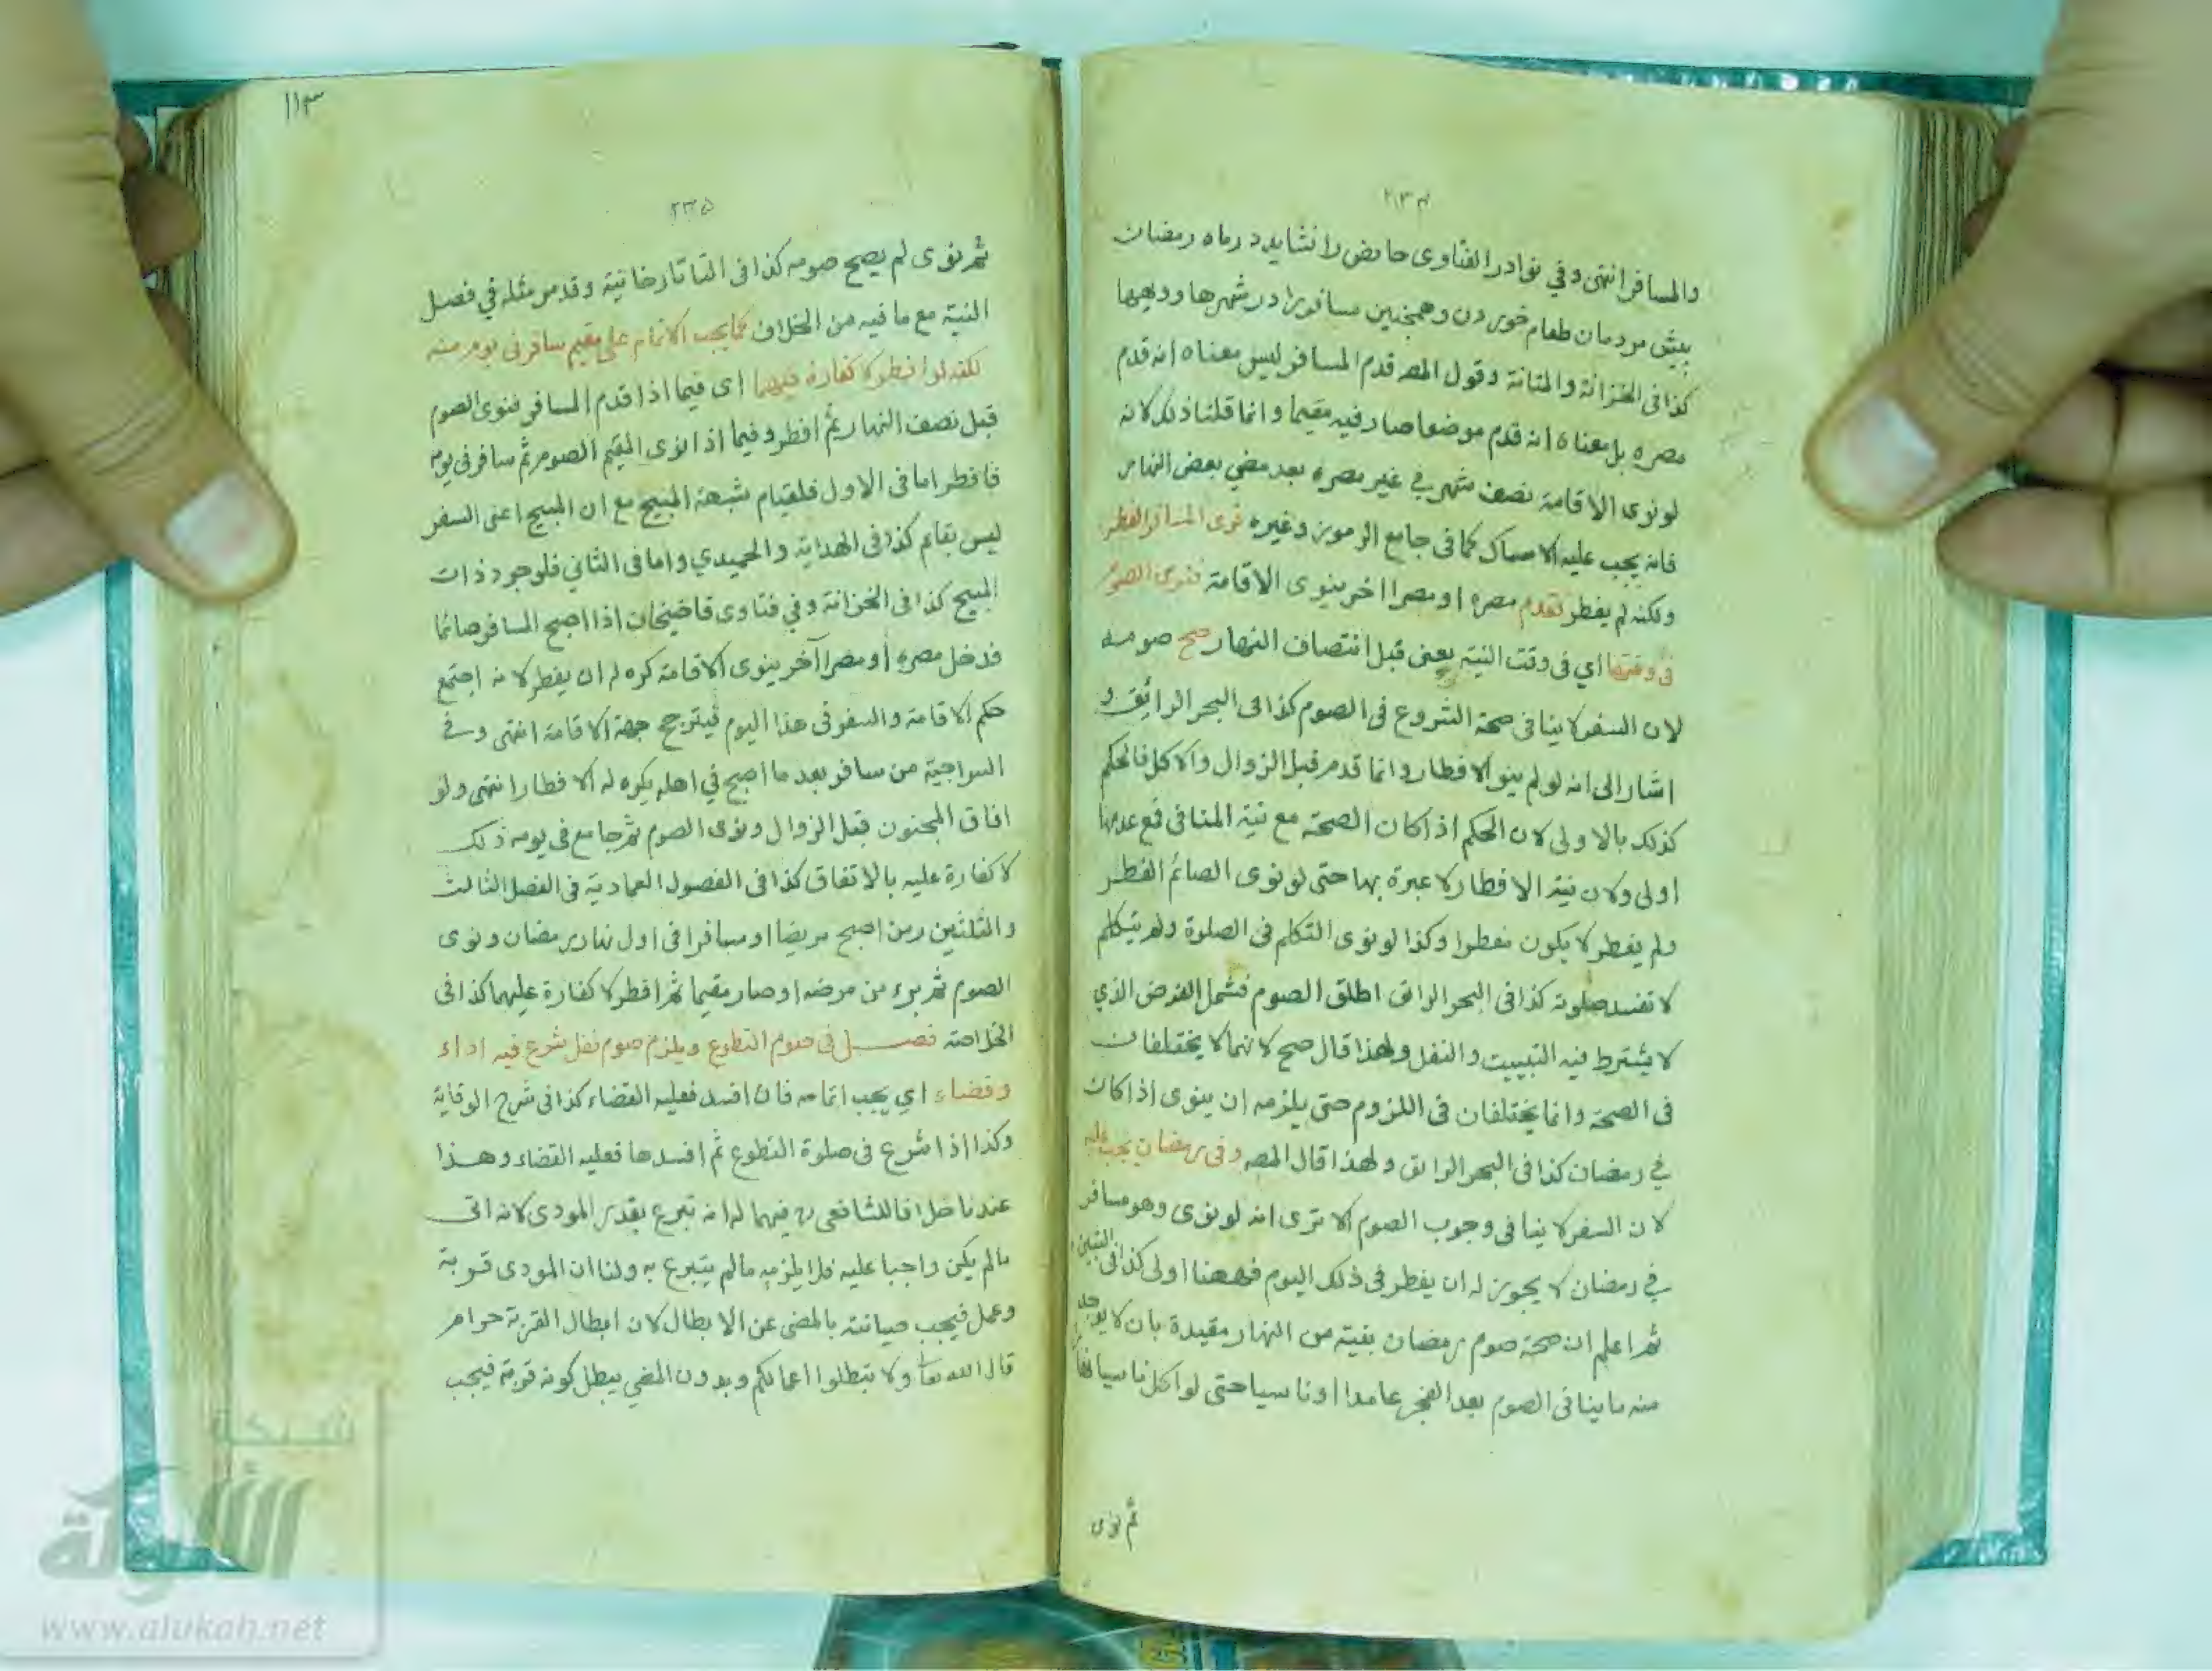 ٢٣٤
والمسافر انتهى وفي نوادر الفتاوى حائض را نشايد در ماه رمضان
پيش مردمان طعام خوردن وهمچنين مسافر را در شهرها وديهها
كذا فى الخزانة والمتانة وقول المصـ قدم المسافر ليس معناه انه قدم
مصره بل معناه انه قدم موضعا صار فيه مقيما وانما قلنا ذلك لانه
لو نوى الاقامة نصف شهر في غير مصره بعد مضي بعض النهار
فانه يجب عليه الامساك كما فى جامع الرموز وغيره نوى المسافر الفطر
ولكنه لم يفطر فقدم مصره او مصرا اخر بنوى الاقامة فنوى الصوم
فى وقتها اي فى وقت النية يعنى قبل انتصاف النهار صح صومه
لان السفر لا ينافى صحة الشروع فى الصوم كذا فى البحر الرائق و
اشار الى انه لو لم ينو الافطار وانما قدم قبل الزوال والاكل فالحكم
كذلك بالاولى لان الحكم اذا كان الصحة مع نية المنافى فمع عدمها
اولى ولان نية الافطار لا عبرة بها حتى لو نوى الصائم الفطر
ولم يفطر لا يكون مفطرا وكذا لو نوى التكلم فى الصلوة ولم يتكلم
لا تفسد صلوته كذا فى البحر الرائق اطلق الصوم فشمل الفرض الذي
لا يشترط فيه التبييت والنفل ولهذا قال صح لانهما لا يختلفان
فى الصحة وانما يختلفان فى اللزوم حتى يلزمه ان ينوى اذا كان
في رمضان كذا فى البحر الرائق ولهذا قال المصـ وفى رمضان يجب عليه
لان السفر لا ينافى وجوب الصوم الا ترى انه لو نوى وهو مسافر
في رمضان لا يجوز له ان يفطر فى ذلك اليوم فههنا اولى كذا فى التبيين
ثم اعلم ان صحة صوم رمضان بنية من النهار مقيدة بان لا يوجد
منه ما ينافى الصوم بعد الفجر عامدا او ناسيا حتى لو اكل ناسيا
ثم نوى
١١٣
٢٣٥
ثم نوى لم يصح صومه كذا فى التاتارخانية وقد مر مثله في فصل
النية مع ما فيه من الخلاف كما يجب الاتمام على مقيم سافر فى يوم منه
لكنه لو افطر لا كفارة فيهما اى فيما اذا قدم المسافر فنوى الصوم
قبل نصف النهار ثم افطر وفيما اذا نوى المقيم الصوم ثم سافر فى يومه
فافطر اما فى الاول فلقيام شبهة المبيح مع ان المبيح اعنى السفر
ليس بقائم كذا فى الهداية والحميدي واما فى الثاني فلوجود ذات
المبيح كذا فى الخزانة وفي فتاوى قاضيخان اذا اصبح المسافر صائما
فدخل مصره او مصرا آخر بنوى الاقامة كره له ان يفطر لانه اجتمع
حكم الاقامة والسفر فى هذا اليوم فيترجح جهة الاقامة انتهى وفي
السراجية من سافر بعد ما اصبح في اهله يكره له الافطار انتهى ولو
افاق المجنون قبل الزوال ونوى الصوم ثم جامع فى يومه ذلك
لا كفارة عليه بالاتفاق كذا فى الفصول العمادية فى الفصل الثالث
والثلثين ومن اصبح مريضا او مسافرا فى اول نهار رمضان ونوى
الصوم ثم برء من مرضه او صار مقيما ثم افطر لا كفارة عليهما كذا فى
الخلاصة فصــل فى صوم التطوع ويلزم صوم نفل شرع فيه اداء
وقضاء اي يجب اتمامه فان افسد فعليه القضاء كذا فى شرح الوقاية
وكذا اذا شرع فى صلوة التطوع ثم افسدها فعليه القضاء وهذا
عندنا خلافا للشافعى رح فيهما له انه تبرع بقدر المودى لانه اتى
ما لم يكن واجبا عليه فلا يلزمه ما لم يتبرع به ولنا ان المودى قربة
وعمل فيجب صيانته بالمضى عن الابطال لان ابطال القربة حرام
قال الله تعا ولا تبطلوا اعمالكم وبدون المضي يبطل كونه قربة فيجب
شبكة
الألوكة
www.alukah.net